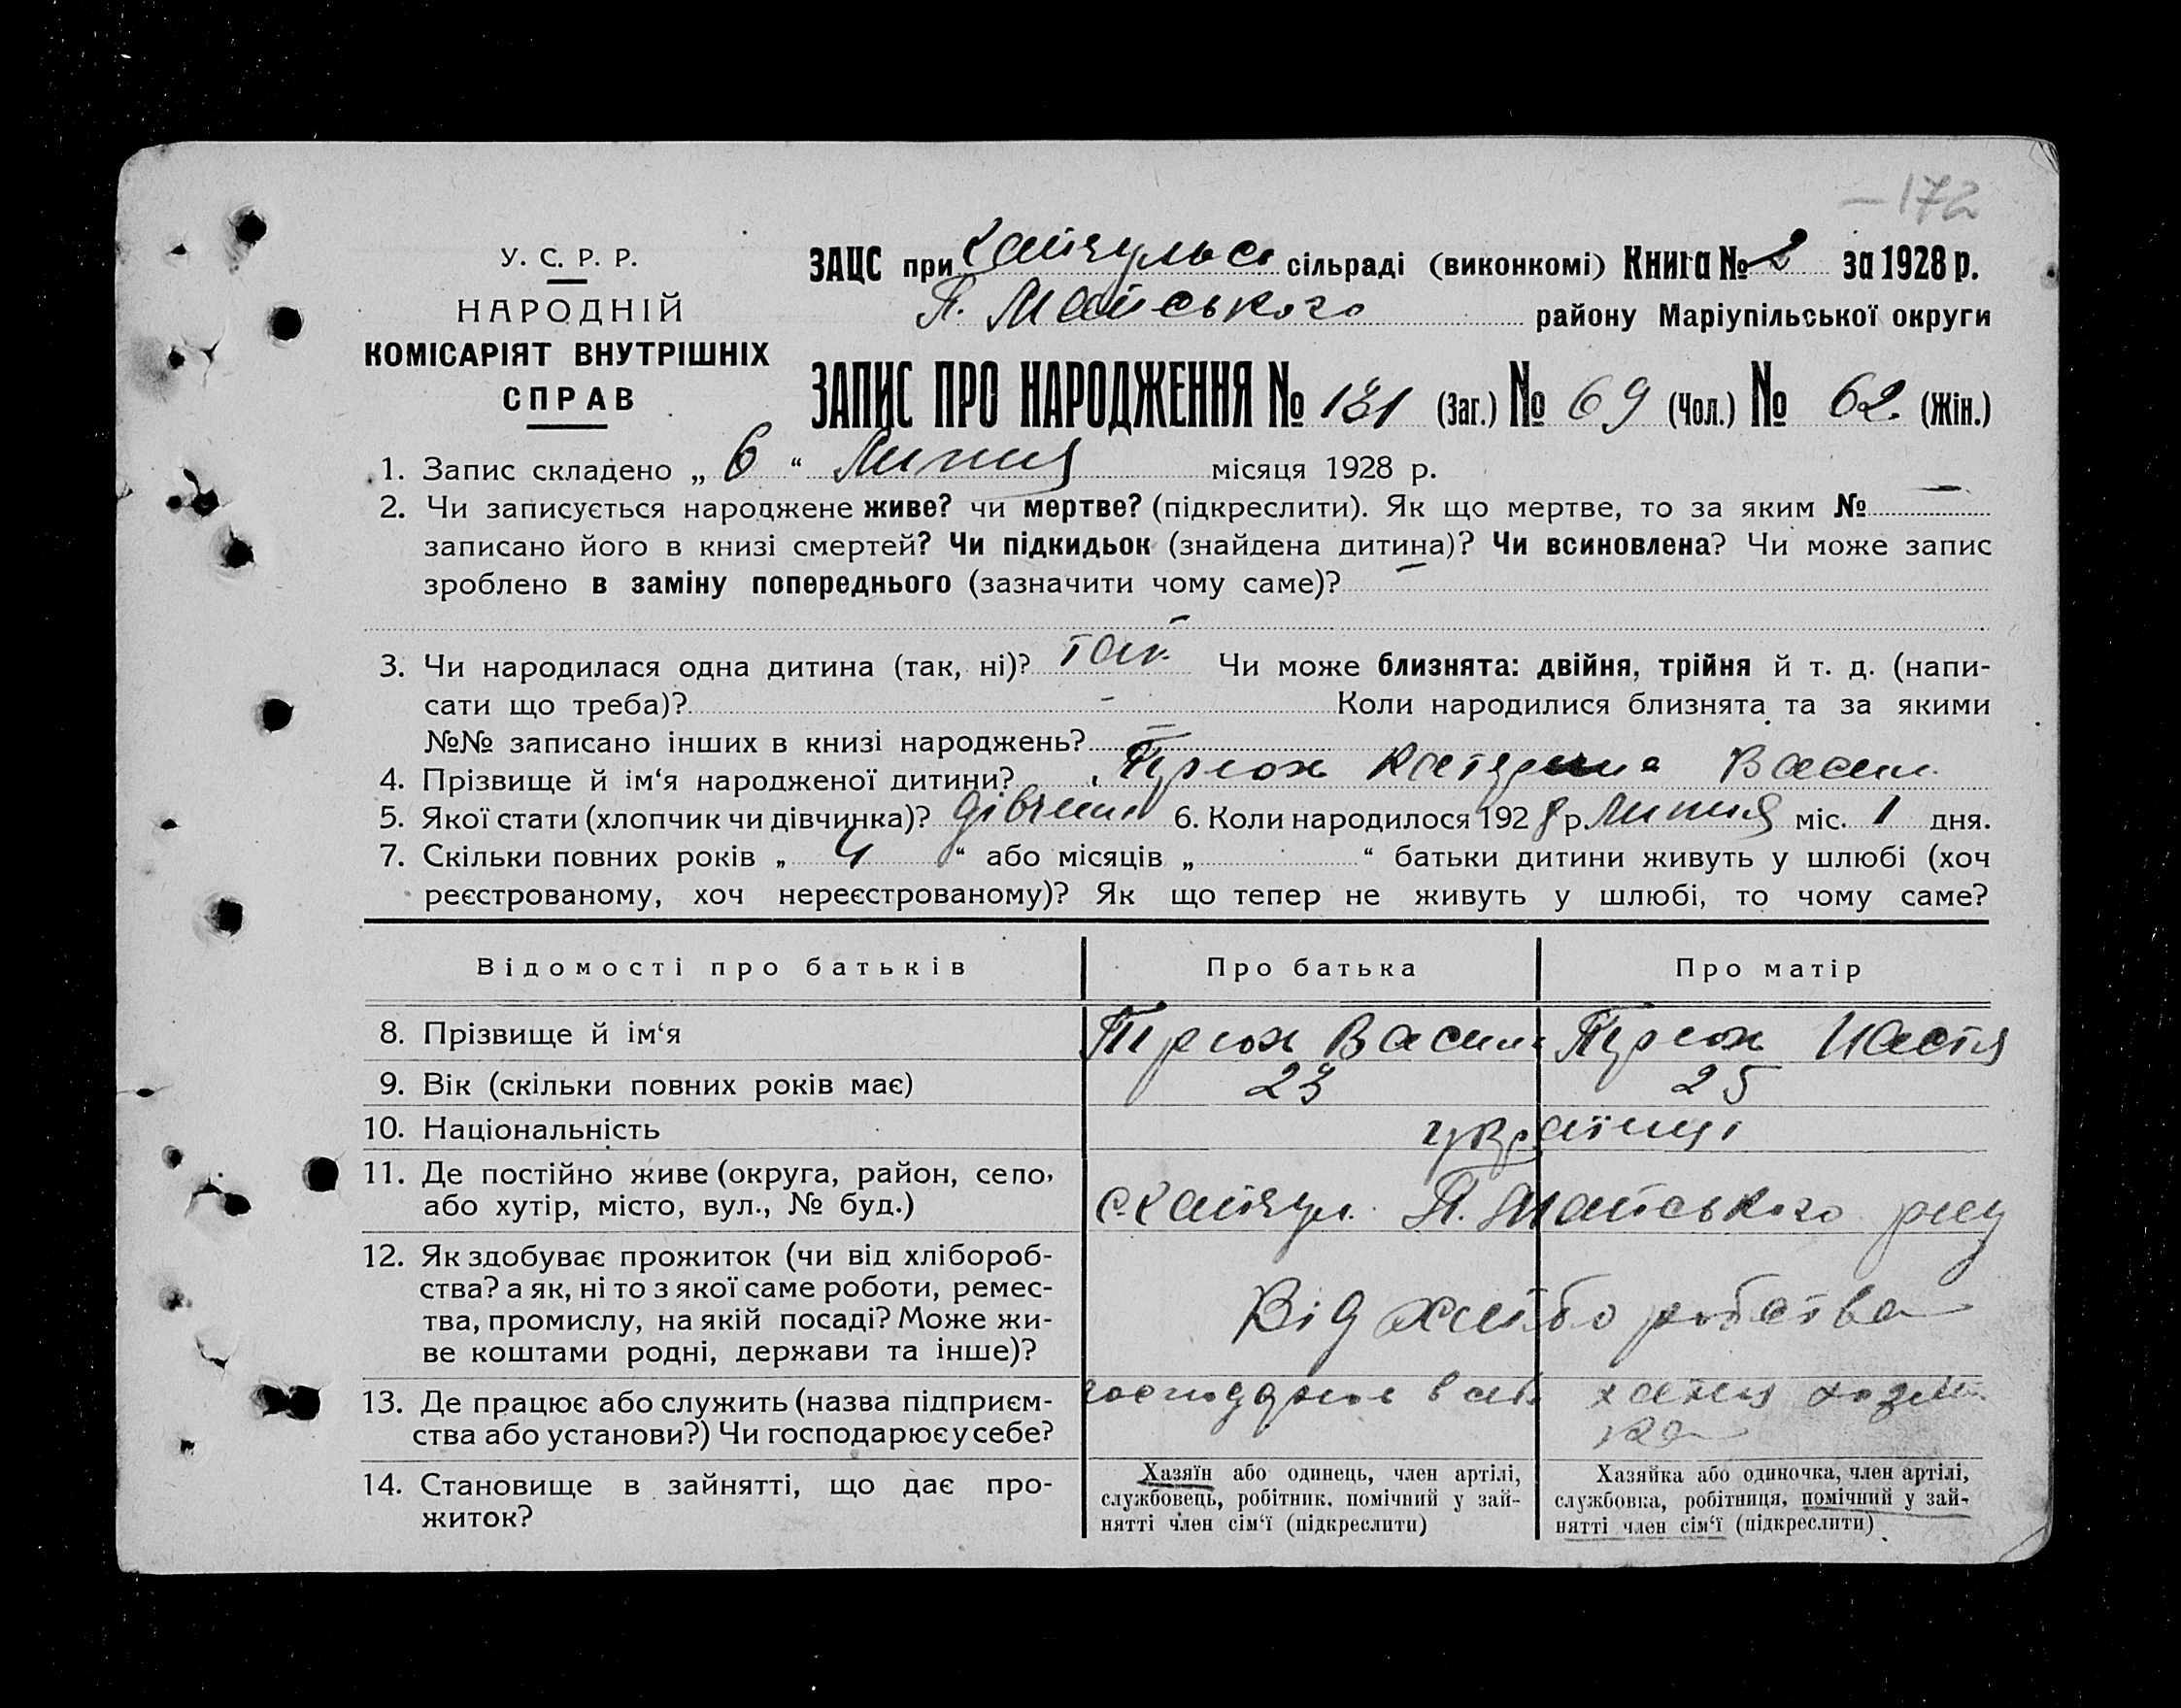 – 172
У. С. Р. Р.
НАРОДНІЙ
КОМІСАРІЯТ ВНУТРІШНІХ
СПРАВ
ЗАЦС при сільраді (виконкомі) Книга № 2 за 1928 р.
П. Майського району Маріупільської округи
ЗАПИС ПРО НАРОДЖЕННЯ № 131 (Заг.) № 69 (Чол.) № 62. (Жін.)
1. Запис складено „ 6 “ Липня місяця 1928 р.
2. Чи записується народжене живе? чи мертве? (підкреслити). Як що мертве, то за яким № —
записано його в книзі смертей? Чи підкидьок (знайдена дитина)? Чи всиновлена? Чи може запис
зроблено в заміну попереднього (зазначити чому саме)? –
–
3. Чи народилася одна дитина (так, ні)? так Чи може близнята: двійня, трійня й т. д. (напи-
сати що треба)? - Коли народилися близнята та за якими
№№ записано інших в книзі народжень? –
4. Прізвище й ім‘я народженої дитини? Катерина Васил.
5. Якої стати (хлопчик чи дівчинка)? дівчина 6. Коли народилось 1928 р. Липня міс. 1 дня.
7. Скільки повних років „ 4 “ або місяців „ “ батьки дитини живуть у шлюбі (хоч
реєстрованому, хоч нереєстрованому)? Як що тепер не живуть у шлюбі, то чому саме?
Відомості про батьків Про батька Про матір
8. Прізвище й ім‘я Василь Настя
9. Вік (скільки повних років має) 23 25
10. Національність українці
11. Де постійно живе (округа, район, село,
або хутір, місто, вул., № буд.) П. Майського рну
12. Як здобуває прожиток (чи від хлібороб-
ства? а як, ні то з якої саме роботи, ремес-
тва, промислу, на якій посаді? Може жи-
ве коштами родні, держави та інше)? Від хлібо робства
13. Де працює або служить (назва підприєм-
ства або установи?) Чи господарює у себе? господарює в
14. Становище в зайнятті, що дає про-
житок?
Хазяїн або одинець, член артілі,
службовець, робітник, помічний у зай-
нятті член сім‘ї (підкреслити)
Хазяйка або одиночка, член артілі,
службовка, робітниця, помічний у зай-
нятті член сім‘ї (підкреслити)